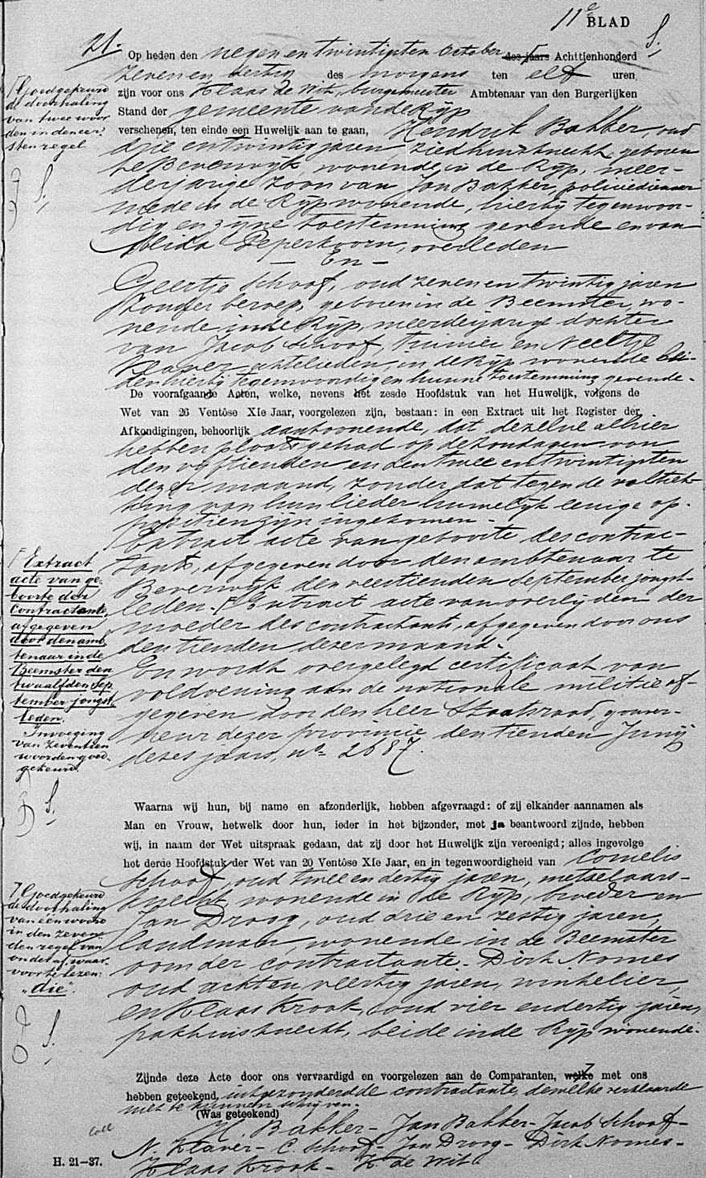 11e BLAD
21.
Op heden den negen en twintigsten October des jaars Achttienhonderd
zeven en dertig des morgens ten elf uren,
zijn voor ons Klaas de Wit, burgemeester Ambtenaar van den Burgerlijken
Stand der gemeente van de Rijp
verschenen, ten einde een Huwelijk aan te gaan, Hendrik Bakker, oud
drie en twintig jaren, geboren
te Beverwijk, wonende in de Rijp, meer-
derjarige zoon van Jan Bakker, politiedienaar
mede in de Rijp wonende, hierbij tegenwoor-
dig en zijne toestemming gevende en van
Alida Peperkoorn, overleden
- En -
Geertje Schoof, oud zeven en twintig jaren
zonder beroep, geboren in de Beemster, wo-
nende in de Rijp, meerderjarige dochter
van Jacob Schoof, tuinier en Neeltje
Klaver, echtelieden, in de Rijp wonende bei-
den hierbij tegenwoordig en hunne toestemming gevende.
De voorafgaande Acten, welke, nevens het zesde Hoofdstuk van het Huwelijk, volgens de
Wet van 26 Ventôse XIe Jaar, voorgelezen zijn, bestaan: in een Extract uit het Register der
Afkondigingen, behoorlijk aantoonende, dat dezelve alhier
hebben plaats gehad op de zondagen van
den vijftienden en den twee en twintigsten
dezer maand, zonder dat tegen de voltrek-
king van hun lieder huwelijk eenige op-
positien zijn ingekomen.
Extract acte van geboorte des contrac-
tants, afgegeven door den ambtenaar te
Beverwijk den veertienden September jongst-
leden. Γ Extract acte van overlijden der
moeder des contractants, afgegeven door ons
den tienden dezer maand.
En wordt overgelegd certificaat van
voldoening aan de nationale militie af-
gegeven door den heer Staatsraad, gouver-
neur dezer provincie den tienden Junij
dezes jaars, no. 2687.
Waarna wij hun, bij name en afzonderlijk, hebben afgevraagd: of zij elkander aannamen als
Man en Vrouw, hetwelk door hun, ieder in het bijzonder, met ja beantwoord zijnde, hebben
wij, in naam der Wet uitspraak gedaan, dat zij door het Huwelijk zijn vereenigd; alles ingevolge
het derde Hoofdstuk der Wet van 20 Ventôse XIe Jaar, en in tegenwoordigheid van Cornelis
Schoof, oud twee en dertig jaren, metselaars-
knecht wonende in de Rijp, broeder en
Jan Droog, oud drie en zestig jaren,
landman wonende in de Beemster
oom der contractante. Dirk Nomes
oud acht en veertig jaren, winkelier,
en Klaas Krook, oud vier en dertig jaren,
pakhuisknecht, beide in de Rijp wonende.
Zijnde deze Acte door ons vervaardigd en voorgelezen aan de Comparanten, welke met ons
hebben geteekend, uitgezonderd de contractante, dewelke verklaarde
niet te kunnen schrijven.
(Was geteekend)
H. Bakker - Jan Bakker - Jacob Schoof -
N. Klaver - C. Schoof - Jan Droog - Dirk Nomes -
Klaas Krook - K. de Wit
H. 21—37.
Γ Goedgekeurd
de doorhaling
van twee woor-
den in den eer-
sten regel
Γ Extract
acte van ge-
boorte der
Contractante,
afgegeven
door den amb-
tenaar in de
Beemster den
twaalfden Sep-
tember jongst-
leden.
Invoeging
van zeventien
woorden goed-
gekeurd.
Γ Goedgekeurd
de doorhaling
van één woord
in den zeven-
den regel van
onder af, waar-
voor te lezen:
"die".